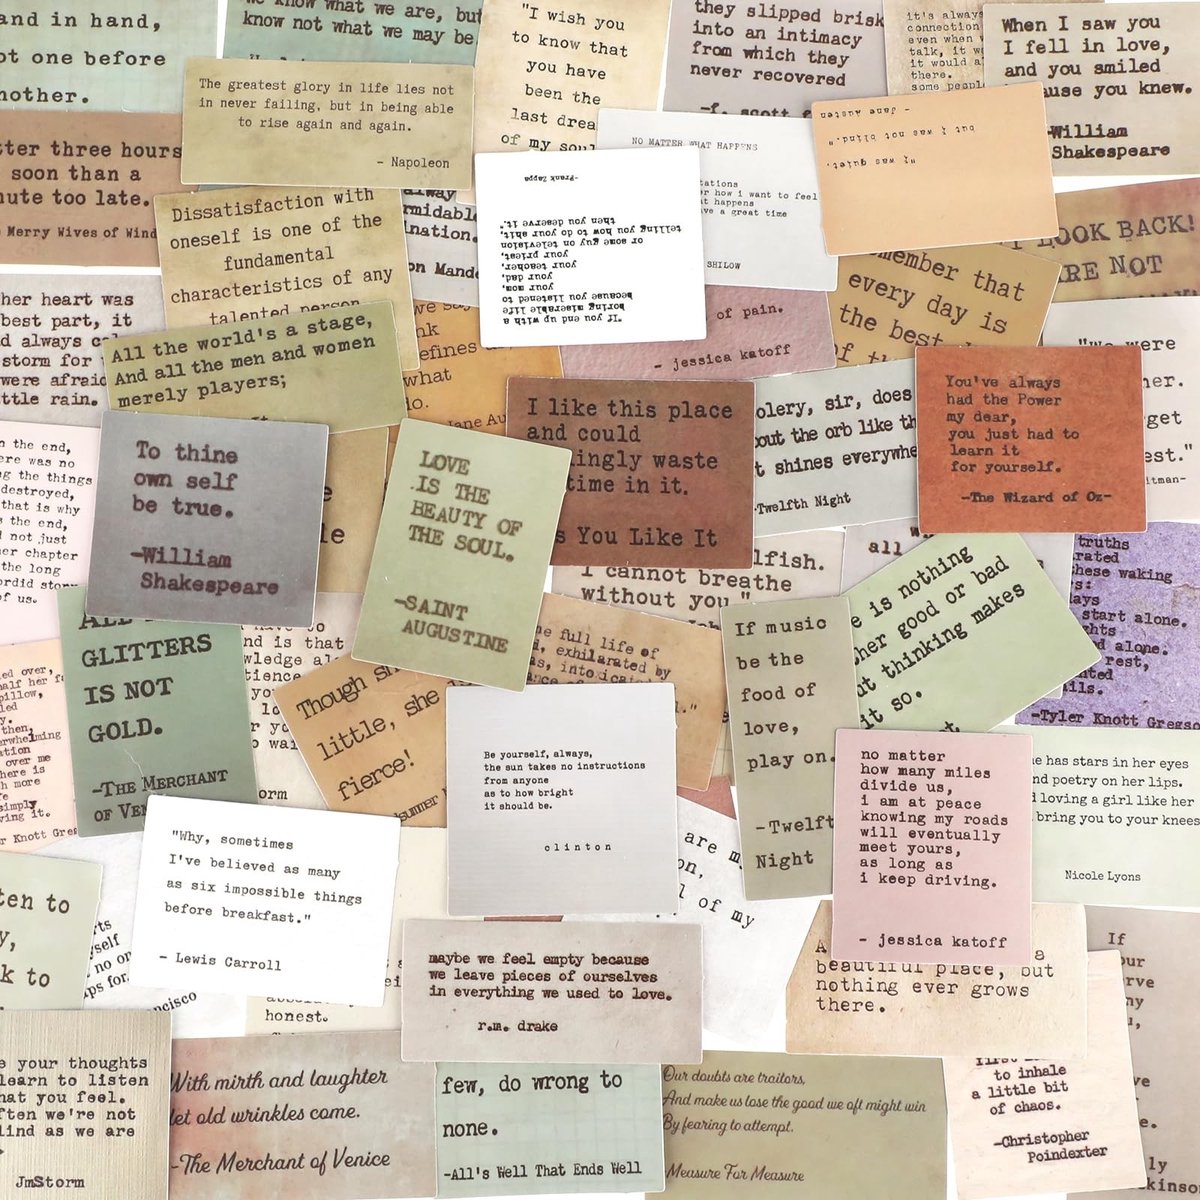 and in hand,
ot one before
nother.
we know what we are, but
know not what we may be
"I wish you
to know that
you have
been the
last drea
of my soul
they slipped brisk
into an intimacy
from which they
never recovered
—f. scott f
it's always
connection
even when
talk, it w
it would a
there.
some peopl
When I saw you
I fell in love,
and you smiled
ause you knew.
—William
Shakespeare
The greatest glory in life lies not
in never failing, but in being able
to rise again and again.
- Napoleon
NO MATTER WHAT HAPPENS
tations
or how i want to feel
at happens
ave a great time
SHILOW
"I was quiet,
but I was not blind."
- Jane Austen
tter three hours
soon than a
nute too late.
Merry Wives of Wind
Dissatisfaction with
oneself is one of the
fundamental
characteristics of any
talented person
always
rmidabl
nation.
on Mande
"If you end up with a
boring miserable life
because you listened to
your mom,
your dad,
your teacher,
your priest,
or some guy on television
telling you how to do your shit,
then you deserve it."
-Frank Zappa
of pain.
- jessica katoff
member that
every day is
the best
of th
LOOK BACK!
RE NOT
her heart was
best part, it
d always c
storm for
were afraid
ttle rain.
All the world's a stage,
And all the men and women
merely players;
we say
nk
efines
what
do.
Jane Au
I like this place
and could
ingly waste
time in it.
s You Like It
olery, sir, does
bout the orb like th
t shines everywhe
Twelfth Night
You've always
had the Power
my dear,
you just had to
learn it
for yourself.
-The Wizard of Oz-
"we were
her.
rget
est."
itman-
n the end,
ere was no
ng the things
destroyed,
that is why
s the end,
d not just
her chapter
the long
ordid story
of us.
To thine
own self
be true.
—William
Shakespeare
LOVE
IS THE
BEAUTY OF
THE SOUL.
—SAINT
AUGUSTINE
lfish.
I cannot breathe
without you."
all
e is nothing
her good or bad
ut thinking makes
it so.
truths
rated
hese waking
s:
ays
start alone.
ghts
d alone.
rest,
nted
ils.
—Tyler Knott Gregso
GLITTERS
IS NOT
GOLD.
—THE MERCHANT
OF VEN
nd is that
wledge al
tience
you
Though sh
little, she
fierce!
dsummer
he full life of
d, exhilarated by
s, intoxicat
If music
be the
food of
love,
play on.
-Twelft
Night
ed over,
half her f
pillow,
then,
erwhelming
ation
over me
here is
h more
fe
simply
ving it.
r Knott Greg
Be yourself, always,
the sun takes no instructions
from anyone
as to how bright
it should be.
clinton
no matter
how many miles
divide us,
i am at peace
knowing my roads
will eventually
meet yours,
as long as
i keep driving.
- jessica katoff
he has stars in her eyes
nd poetry on her lips.
d loving a girl like her
bring you to your knees
Nicole Lyons
orm
"Why, sometimes
I've believed as many
as six impossible things
before breakfast."
- Lewis Carroll
are m
on,
l of my
ten to
y,
k to
rts
yself
no on
ps for.
ncisco
honest.
maybe we feel empty because
we leave pieces of ourselves
in everything we used to love.
r.m. drake
beautiful place, but
nothing ever grows
there.
If
our
rve
ny
u,
e your thoughts
learn to listen
hat you feel.
ften we're not
lind as we are
JmStorm
With mirth and laughter
let old wrinkles come.
-The Merchant of Venice
few, do wrong to
none.
-All's Well That Ends Well
Our doubts are traitors,
And make us lose the good we oft might win
By fearing to attempt.
Measure For Measure
to inhale
a little bit
of chaos.
—Christopher
Poindexter
ly
kinso